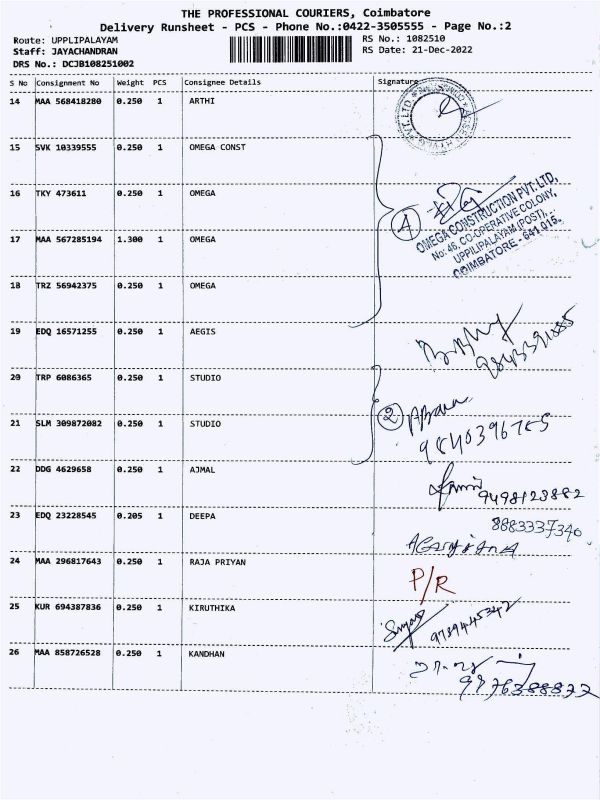 THE PROFESSIONAL COURIERS, Coimbatore
Delivery Runsheet - PCS - Phone No.:0422-3505555 - Page No.:2
Route: UPPLIPALAYAM RS No.: 1082510
Staff: JAYACHANDRAN RS Date: 21-Dec-2022
DRS No.: DCJB108251002
S No Consignment No Weight PCS Consignee Details Signature
14 MAA 568418280 0.250 1 ARTHI
15 SVK 10339555 0.250 1 OMEGA CONST
16 TKY 473611 0.250 1 OMEGA
4
OMEGA CONSTRUCTION PVT. LTD,
No: 46, CO-OPERATIVE COLONY,
UPPILIPALAYAM (POST),
COIMBATORE - 641 015.
17 MAA 567285194 1.300 1 OMEGA
18 TRZ 56942375 0.250 1 OMEGA
19 EDQ 16571255 0.250 1 AEGIS
20 TRP 6086365 0.250 1 STUDIO
2
21 SLM 309872082 0.250 1 STUDIO
22 DDG 4629658 0.250 1 AJMAL
9498123882
23 EDQ 23228545 0.205 1 DEEPA
8883337340
24 MAA 296817643 0.250 1 RAJA PRIYAN
P/R
25 KUR 694387836 0.250 1 KIRUTHIKA
9789445342
26 MAA 858726528 0.250 1 KANDHAN